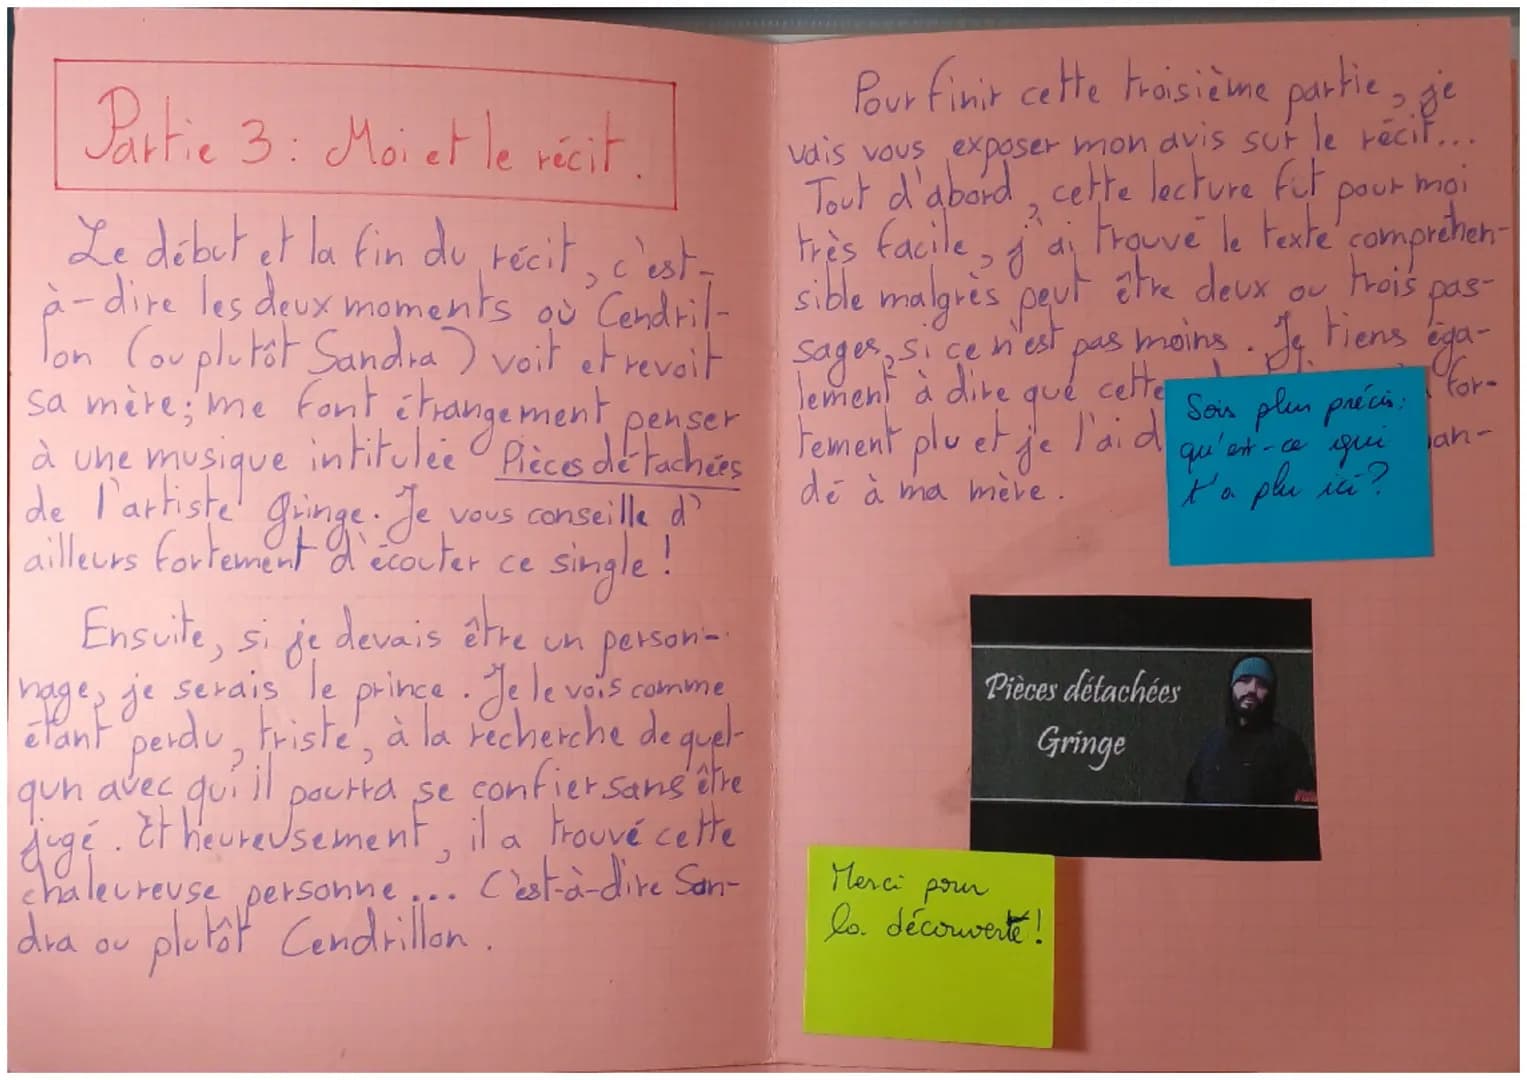 Partie 3 : Moi et le récit.
Le début et la fin du récit, c'est-
à-dire les deux moments où Cendril-
lon (ou plutôt Sandra) voit et revoit
sa mère; me font étrangement penser
à une musique intitulée Pièces détachées
de l'artiste Gringe. Je vous conseille d'
ailleurs fortement d'écouter ce single !
Ensuite, si je devais être un person-
nage, je serais le prince. Je le vois comme
étant perdu, triste, à la recherche de quel-
qun avec qui il pourra se confier sans être
jugé. Et heureusement, il a trouvé cette
chaleureuse personne... C'est-à-dire San-
dra ou plutôt Cendrillon.
Pour finir cette troisième partie, je
vais vous exposer mon avis sur le récit...
Tout d'abord, cette lecture fut pour moi
très facile, j'ai trouvé le texte compréhen-
sible malgrès peut être deux ou trois pas-
sages, si ce n'est pas moins. Je tiens éga-
lement à dire que cette for-
tement plu et je l'ai
dé à ma mère.
Sois plus précis:
qu'est-ce qui
t'a plu ici?
Pièces détachées
Gringe
Merci pour
la découverte !